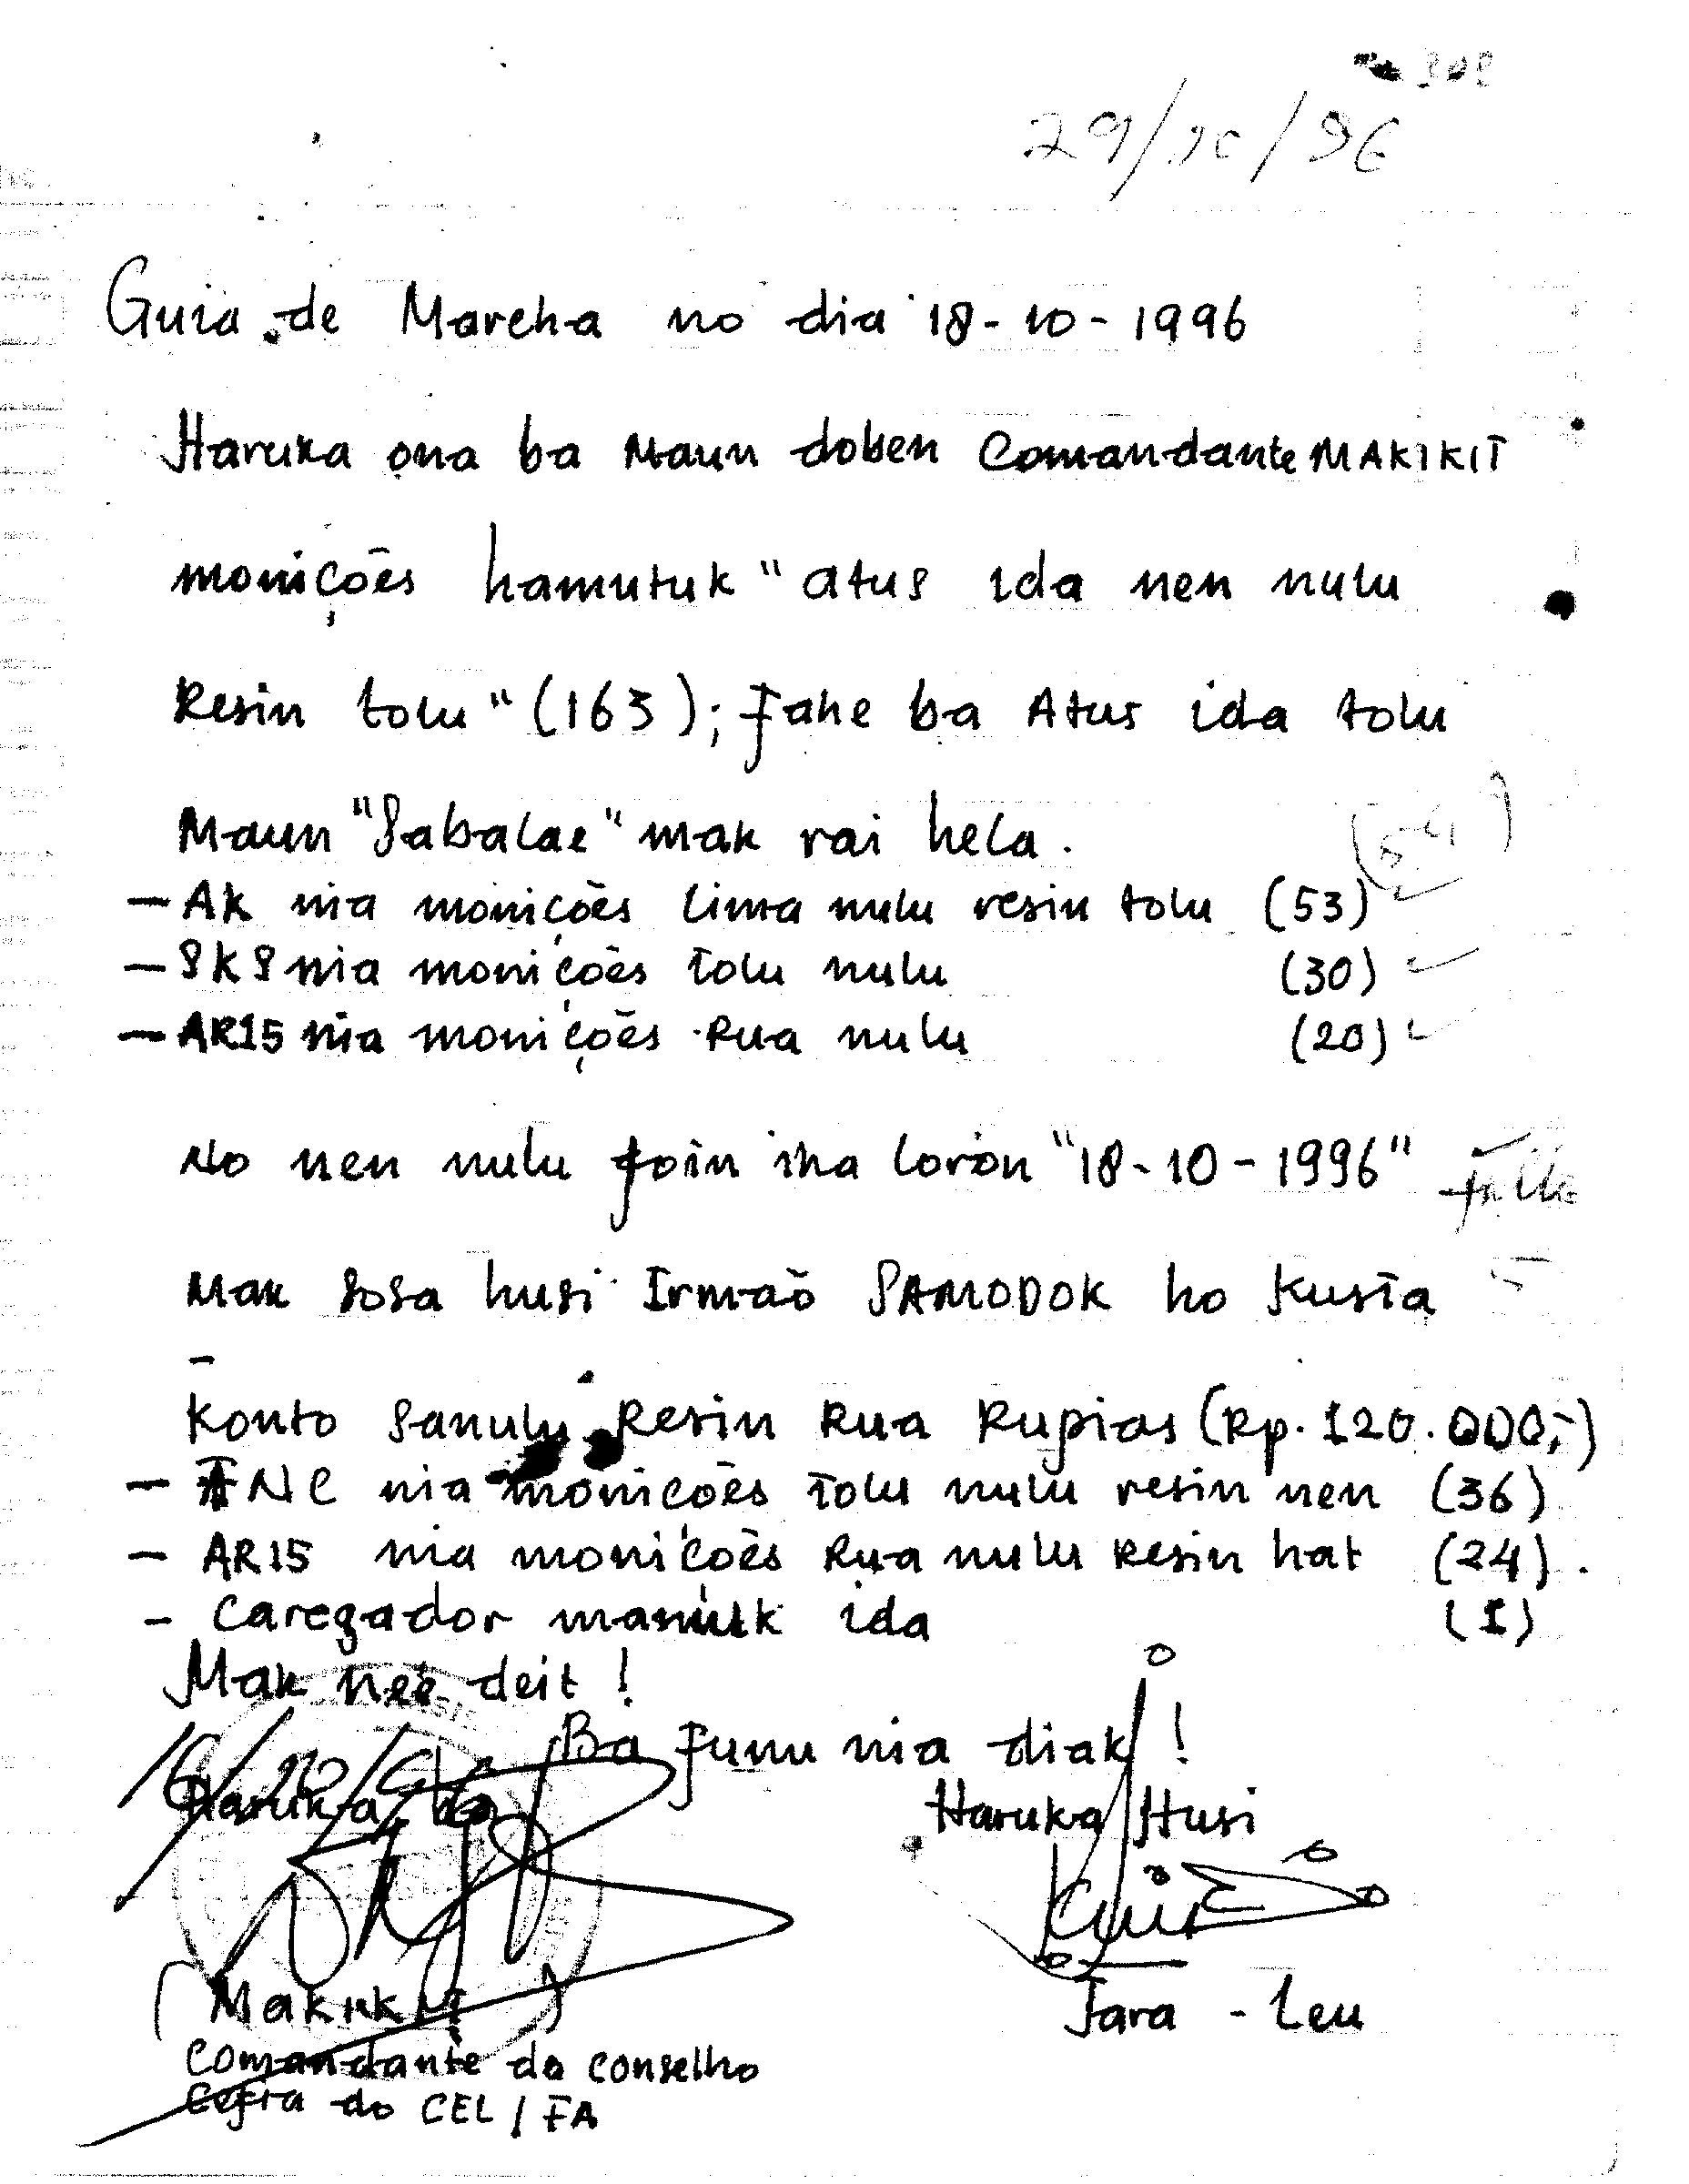 302
29/10/96
Guia de Marcha no dia 18-10-1996
Haruka ona ba Maun doben Comandante MAKIKIT
monições hamutuk "atus ida nen nulu
Resin tolu" (163); Fahe ba Atus ida tolu
Maun "Sabalae" mak rai hela.
(54)
— AK nia monições lima nulu resin tolu (53)
— SKS nia monições tolu nulu (30)
— AR15 nia monições Rua nulu (20)
No nen nulu foin iha loron "18-10-1996"
Mak sosa husi Irmaõ SAMODOK ho Kusta
Konto Sanulu Resin Rua Rupias (Rp. 120.000,-)
— FNC nia monições tolu nulu resin nen (36)
— AR15 nia monições Rua nulu Resin hat (24).
- Caregador mamuk ida (1)
Mak neé deit!
Ba Funu nia diak!
16/10/96
Haruka ba
Haruka Husi
(Makikit)
Fara - Leu
Comandante do conselho
Cefia do CEL / FA